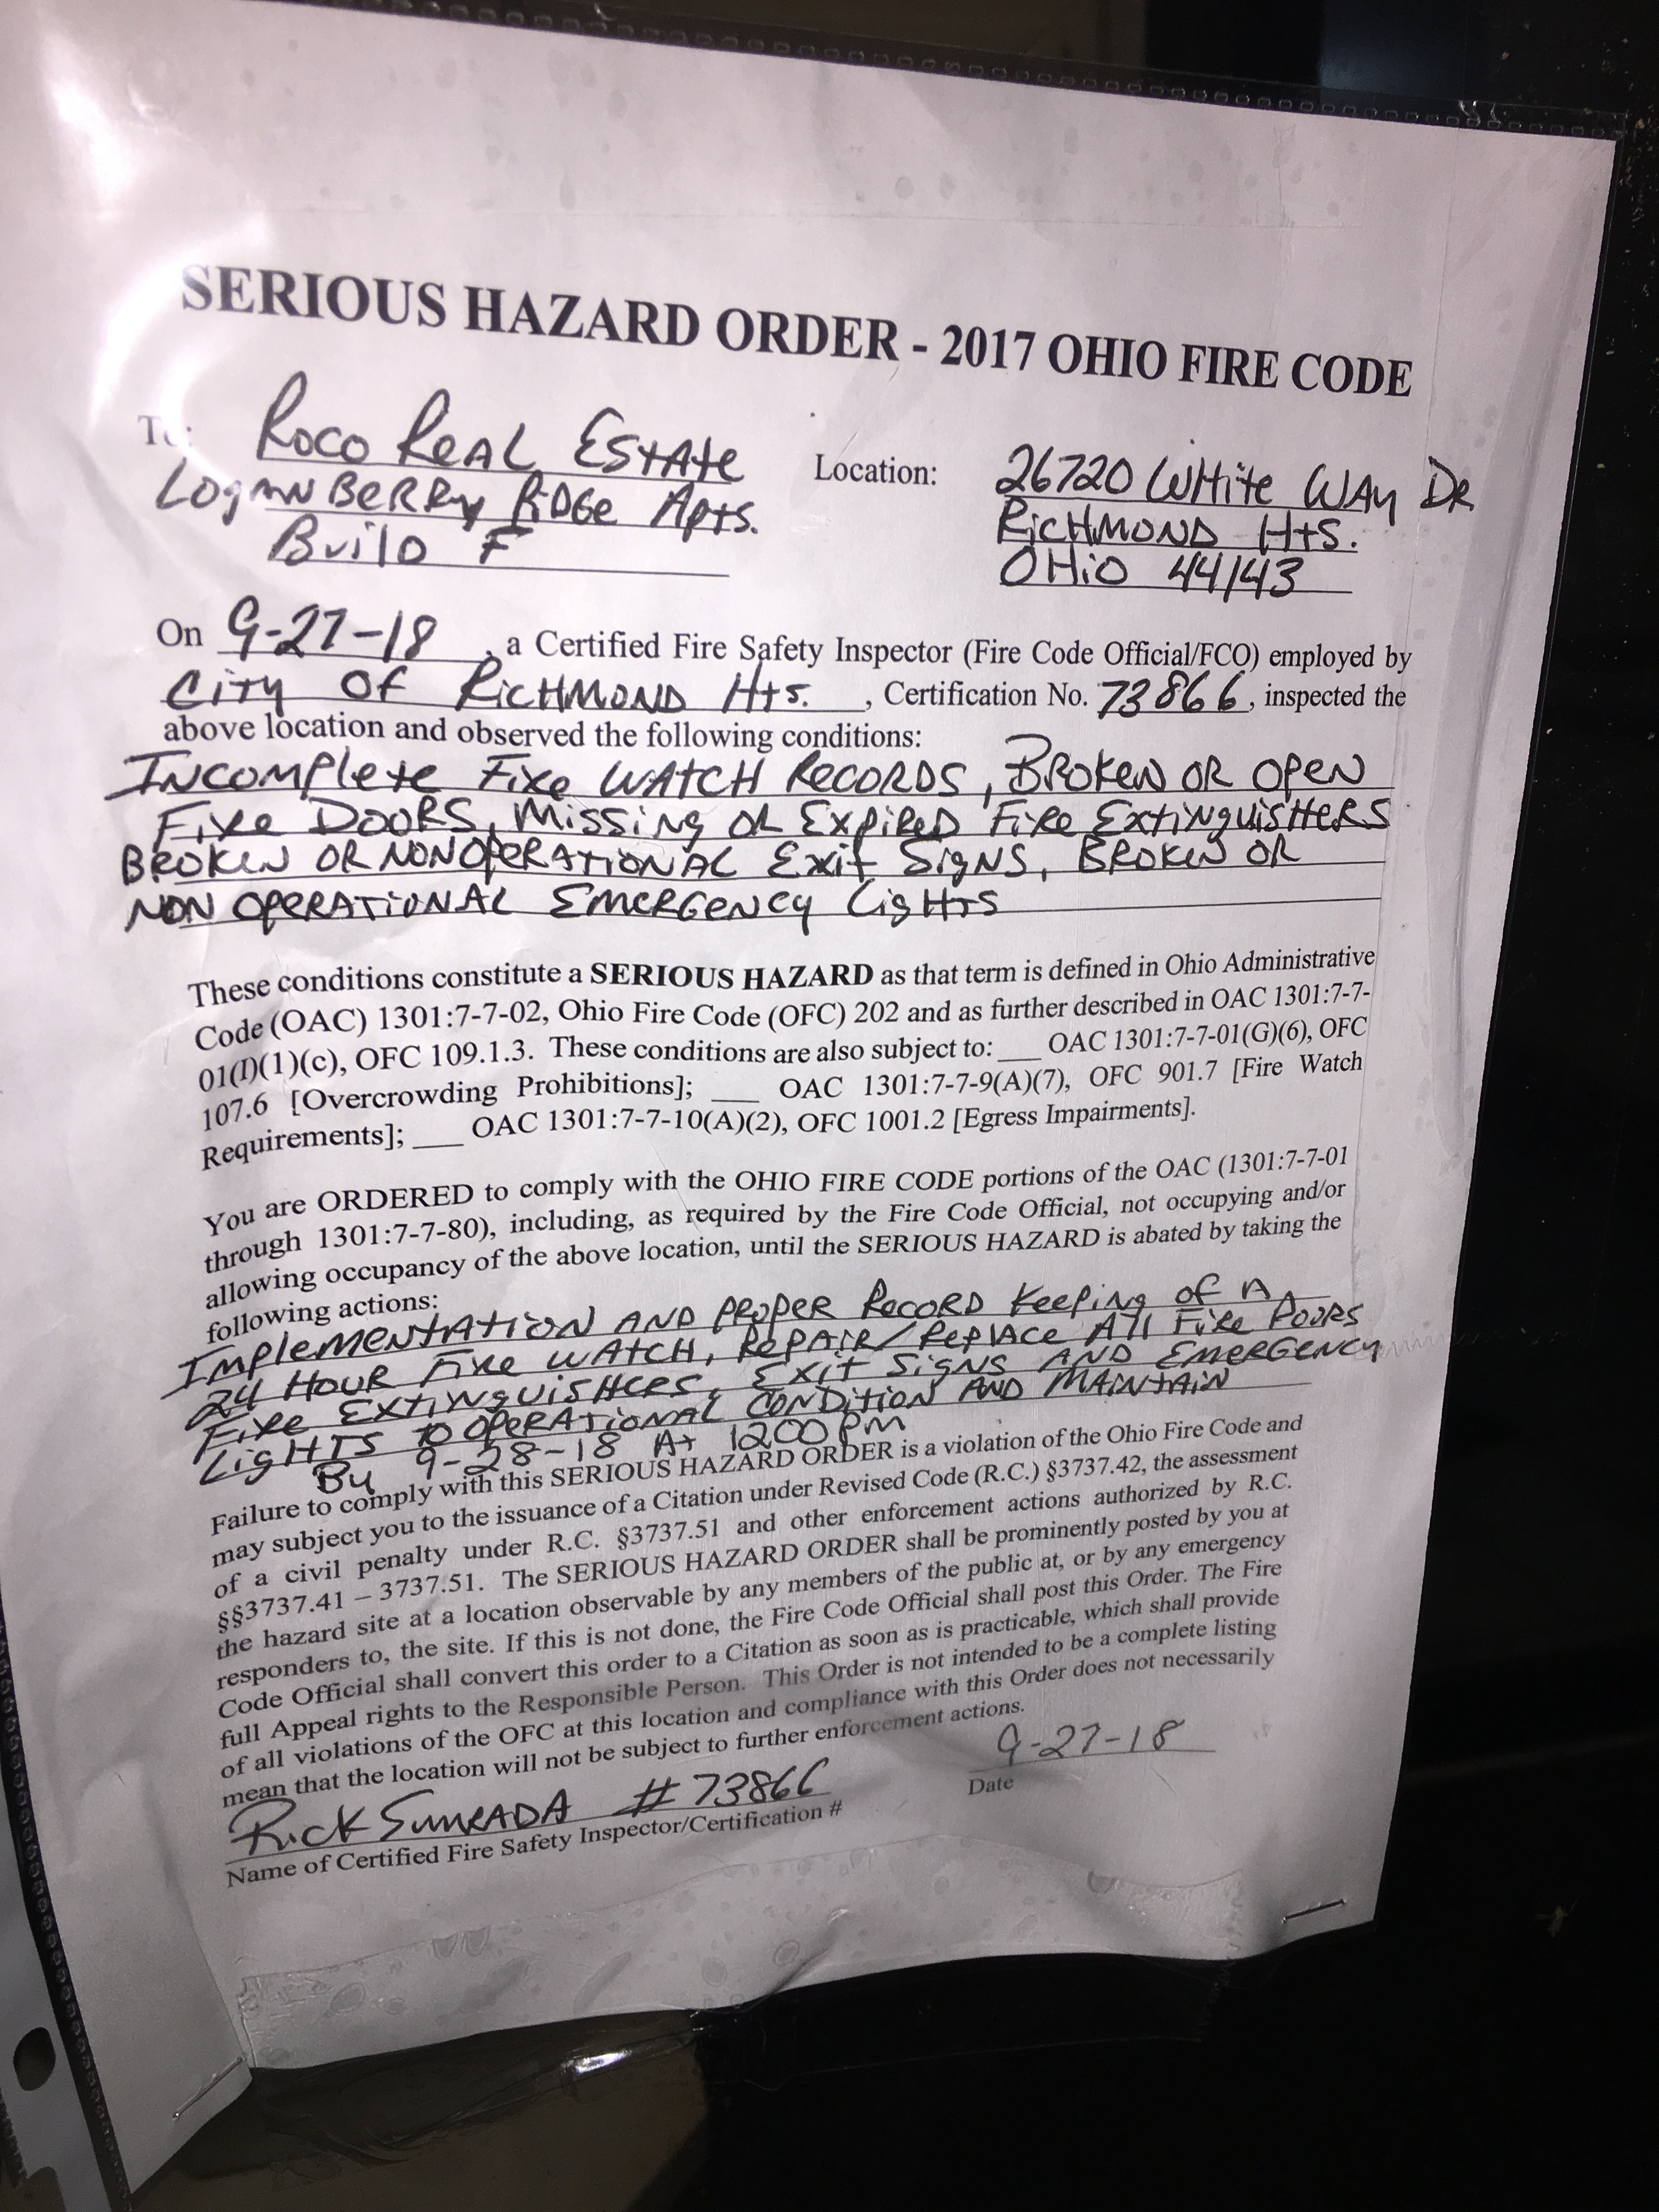 SERIOUS HAZARD ORDER - 2017 OHIO FIRE CODE
To: Roco Real Estate
Loganberry Ridge Apts.
Build F
Location: 26720 White Way Dr
Richmond Hts.
Ohio 44143
On 9-27-18, a Certified Fire Safety Inspector (Fire Code Official/FCO) employed by
City of Richmond Hts., Certification No. 73866, inspected the
above location and observed the following conditions:
Incomplete Fire Watch Records, Broken or open
Fire Doors, Missing or Expired Fire Extinguishers
Broken or nonoperational Exit Signs, Broken or
non operational Emergency Lights
These conditions constitute a SERIOUS HAZARD as that term is defined in Ohio Administrative
Code (OAC) 1301:7-7-02, Ohio Fire Code (OFC) 202 and as further described in OAC 1301:7-7-
01(I)(1)(c), OFC 109.1.3. These conditions are also subject to: ___ OAC 1301:7-7-01(G)(6), OFC
107.6 [Overcrowding Prohibitions]; ___ OAC 1301:7-7-9(A)(7), OFC 901.7 [Fire Watch
Requirements]; ___ OAC 1301:7-7-10(A)(2), OFC 1001.2 [Egress Impairments].
You are ORDERED to comply with the OHIO FIRE CODE portions of the OAC (1301:7-7-01
through 1301:7-7-80), including, as required by the Fire Code Official, not occupying and/or
allowing occupancy of the above location, until the SERIOUS HAZARD is abated by taking the
following actions:
Implementation and proper Record Keeping of A
24 Hour Fire Watch, Repair/Replace All Fire Doors
Fire Extinguishers, Exit Signs and Emergency
Lights to operational condition and maintain
By 9-28-18 At 1200 pm
Failure to comply with this SERIOUS HAZARD ORDER is a violation of the Ohio Fire Code and
may subject you to the issuance of a Citation under Revised Code (R.C.) §3737.42, the assessment
of a civil penalty under R.C. §3737.51 and other enforcement actions authorized by R.C.
§§3737.41 – 3737.51. The SERIOUS HAZARD ORDER shall be prominently posted by you at
the hazard site at a location observable by any members of the public at, or by any emergency
responders to, the site. If this is not done, the Fire Code Official shall post this Order. The Fire
Code Official shall convert this order to a Citation as soon as is practicable, which shall provide
full Appeal rights to the Responsible Person. This Order is not intended to be a complete listing
of all violations of the OFC at this location and compliance with this Order does not necessarily
mean that the location will not be subject to further enforcement actions.
Rick Sumrada #73866
Name of Certified Fire Safety Inspector/Certification #
9-27-18
Date